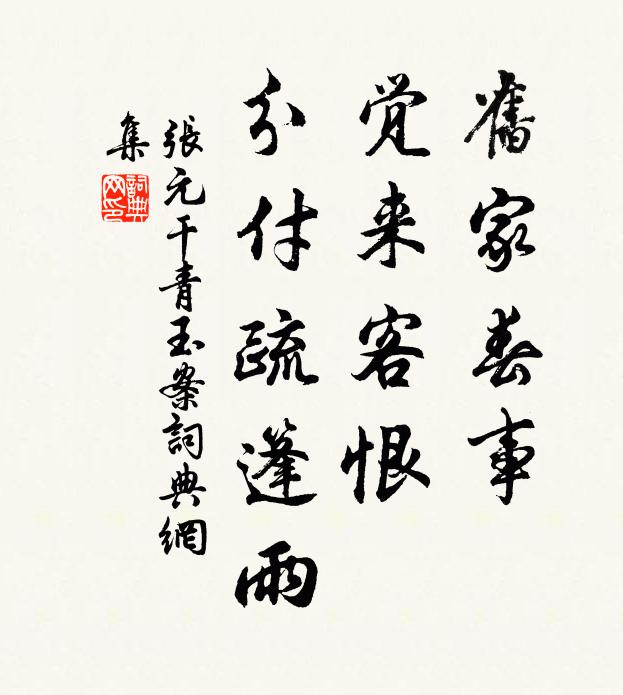 舊家春事
覚来客恨
分付疏篷雨
張元干青玉案詞典網
集
詞典
网印